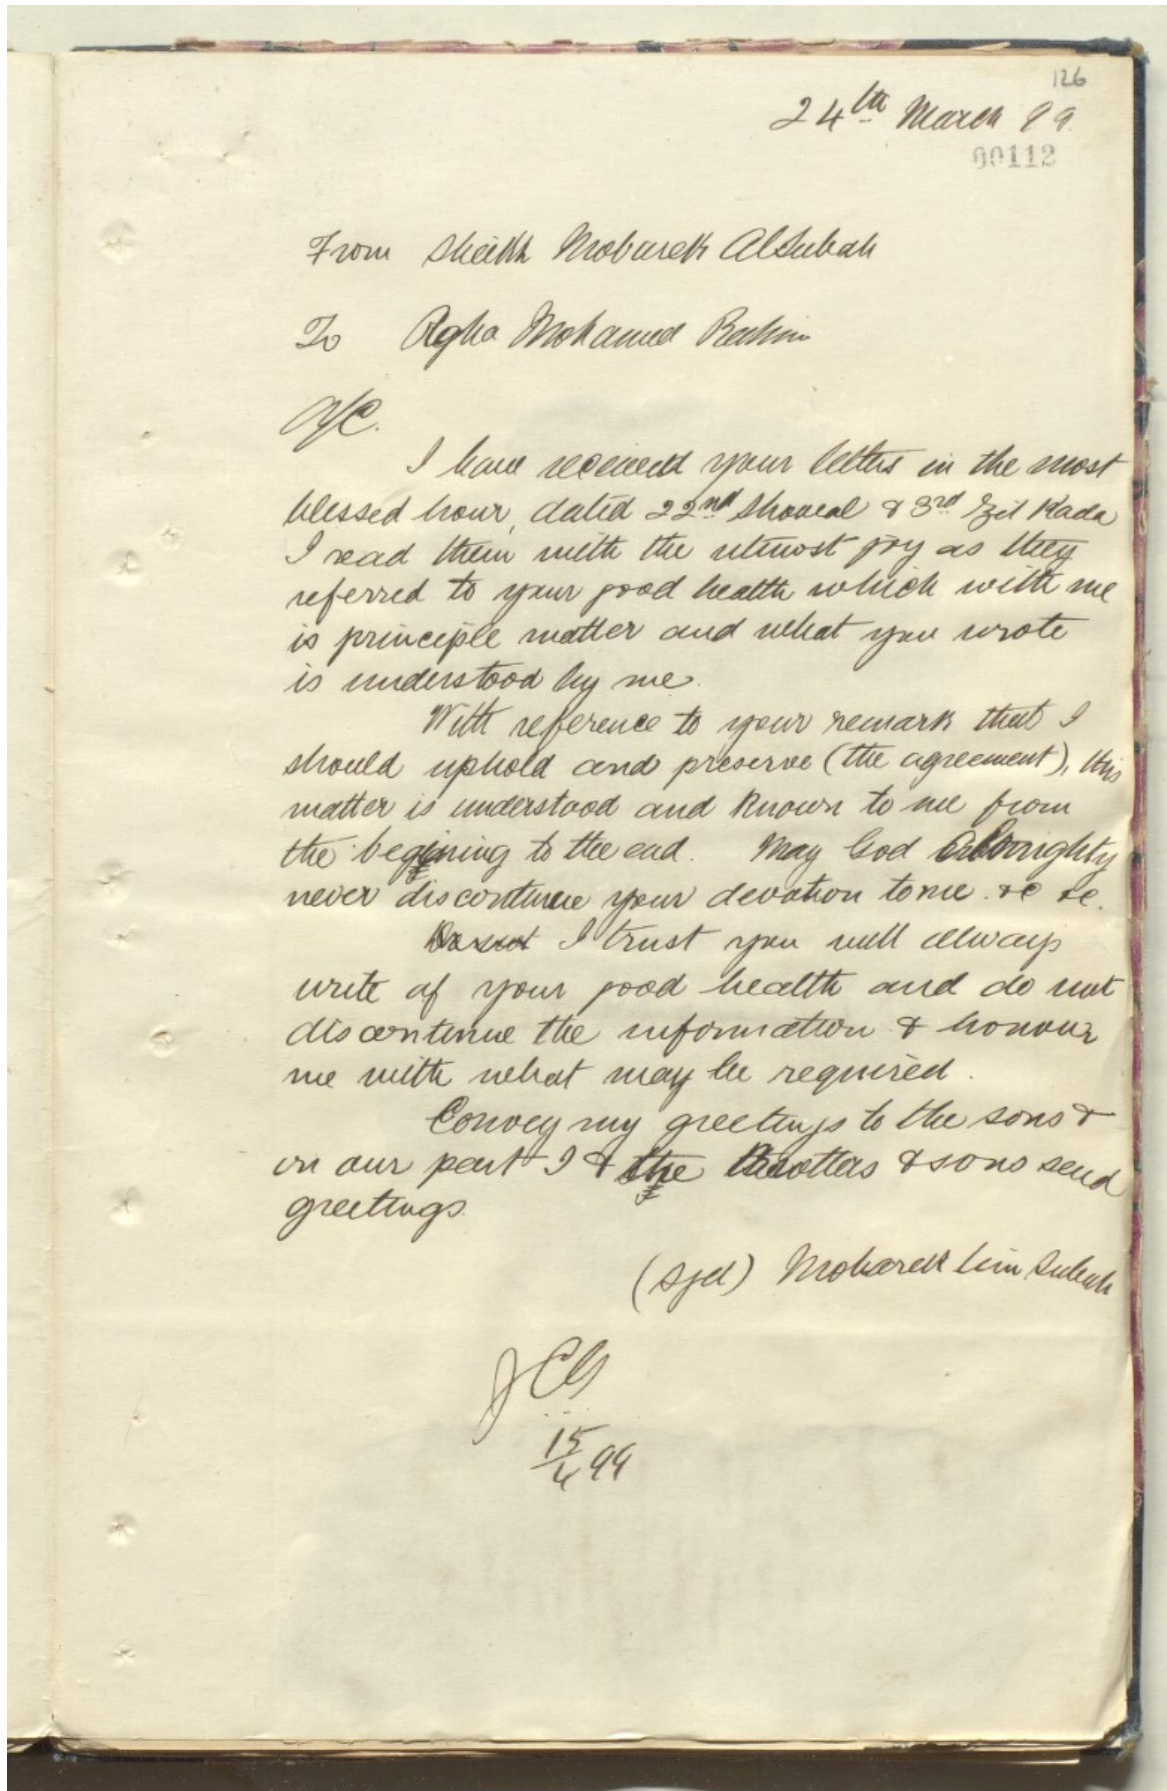 126
24th March 99.
00112
From Sheikh Mobarek AlSubah
To Agha Mohamed Rahim
A/C.
I have received your letters in the most
blessed hour, dated 22nd Showal & 3rd Zil Kada
I read them with the utmost joy as they
referred to your good health which with me
is principle matter and what you wrote
is understood by me.
With reference to your remark that I
should uphold and preserve (the agreement), this
matter is understood and known to me from
the begining to the end. May God Almighty
never discontinue your devotion to me. &c &c.
Do not I trust you will always
write of your good health and do not
discontinue the information & honour
me with what may be required.
Convey my greetings to the sons &
on our part I & the Brothers & sons send
greetings.
(Sgd) Mobarek bin Subah
JCG
15/4 99